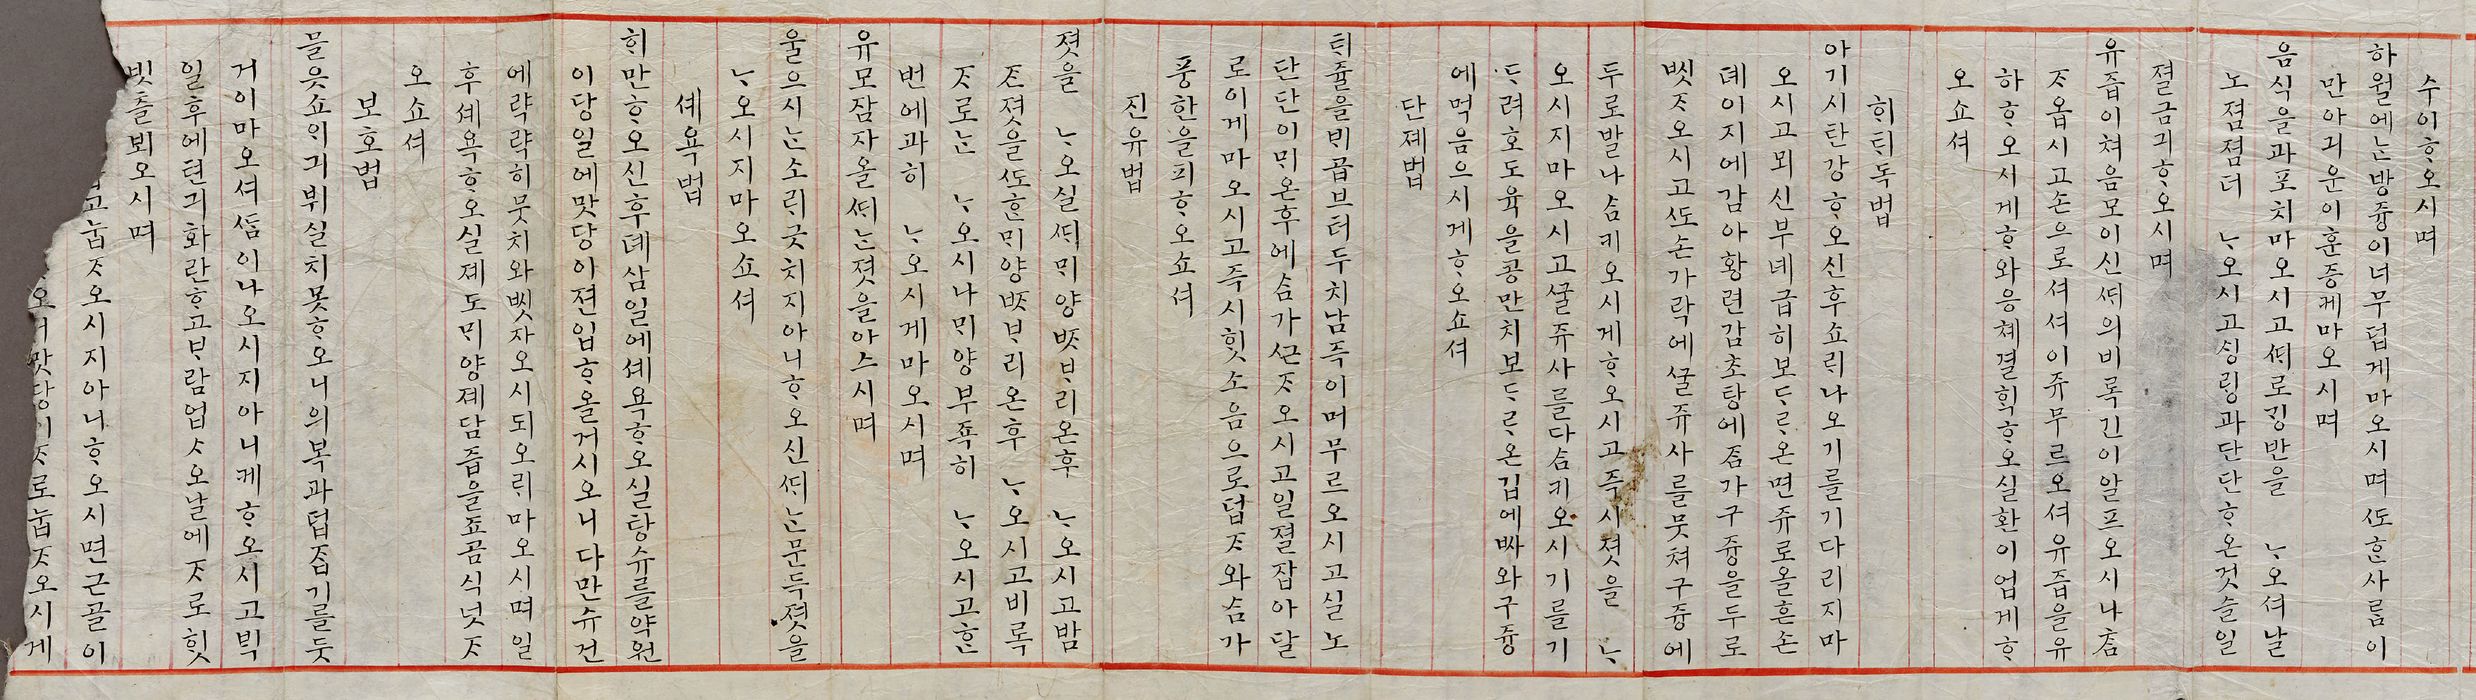 수이ᄒᆞ오시며
하월에ᄂᆞᆫ방즁이너무덥게마오시며ᄯᅩᄒᆞᆫ사ᄅᆞᆷ이
만아긔운이훈증케마오시며
음식을과포치마오시고ᄯᅢ로ᄀᆡᆼ반을 ᄂᆞ오셔날
노졈졈더 ᄂᆞ오시고ᄉᆡᆼᄅᆡᆼ과단단ᄒᆞ온것슬일
졀금긔ᄒᆞ오시며
유즙이쳐음모이신ᄯᅢ의비록긴이알프오시나ᄎᆞᆷ
ᄌᆞ옵시고손으로셔셔이쥬무르오셔유즙을유
하ᄒᆞ오시게ᄒᆞ와응쳬결ᄒᆡᆨᄒᆞ오실환이업게ᄒᆞ
오쇼셔
ᄒᆡᄐᆡ독법
아기시탄강ᄒᆞ오신후쇼ᄅᆡ나오기를기다리지마
오시고뫼신부녜급히보ᄃᆞ라온면쥬로올흔손
뎨이지에감아황련감초탕에ᄌᆞᆷ가구즁을두로
ᄡᅵᆺᄌᆞ오시고ᄯᅩ손가락에ᄭᅮᆯ쥬사를뭇쳐구즁에
두로발나ᄉᆞᆷ키오시게ᄒᆞ오시고즉시졋을 ᄂᆞ
오시지마오시고ᄭᅮᆯ쥬사를다ᄉᆞᆷ키오시기를기
ᄃᆞ려호도육을콩만치보ᄃᆞ라온깁에ᄡᅡ와구즁
에먹음으시게ᄒᆞ오쇼셔
단졔법
ᄐᆡ쥴을ᄇᆡᆨ곱브터두치남즉이머무르오시고실노
단단이ᄆᆡ온후에ᄉᆞᆷ가ᄭᅳᆫᄌᆞ오시고일졀잡아달
로이게마오시고즉시ᄒᆡᆺ소음으로덥ᄌᆞ와ᄉᆞᆷ가
풍한을피ᄒᆞ오쇼셔
진유법
졋을 ᄂᆞ오실ᄯᅢᄆᆡ양ᄧᆞᄇᆞ리온후 ᄂᆞ오시고밤
ᄌᆞᆫ졋을ᄯᅩᄒᆞᆫᄆᆡ양ᄧᆞᄇᆞ리온후 ᄂᆞ오시고비록
ᄌᆞ로ᄂᆞᆫ ᄂᆞ오시나ᄆᆡ양부죡히 ᄂᆞ오시고ᄒᆞᆫ
번에과히 ᄂᆞ오시게마오시며
유모잠자올ᄯᅢᄂᆞᆫ졋을아스시며
울으시ᄂᆞᆫ소ᄅᆡ긋치지아니ᄒᆞ오신ᄯᅢᄂᆞᆫ문득졋을
ᄂᆞ오시지마오쇼셔
셰욕법
히만ᄒᆞ오신후뎨삼일에셰욕ᄒᆞ오실탕슈를약원
이당일에맛당이젼입ᄒᆞ올거시오니다만슈건
에략략히뭇치와ᄡᅵᆺ자오시되오ᄅᆡ마오시며일
후셰욕ᄒᆞ오실졔도ᄆᆡ양졔담즙을죠곰식넛ᄌᆞ
오쇼셔
보호법
믈읏쇼ᄋᆡ긔뷔실치못ᄒᆞ오니의복과덥ᄌᆞᆸ기를둣
거이마오셔ᄯᆞᆷ이나오시지아니케ᄒᆞ오시고ᄇᆡᆨ
일후에텬긔화란ᄒᆞ고ᄇᆞ람업ᄉᆞ오날에ᄌᆞ로ᄒᆡᆺ
빗츨뵈오시며
고눕ᄌᆞ오시지아니ᄒᆞ오시면근골이
맛당이ᄌᆞ로눕ᄌᆞ오시게